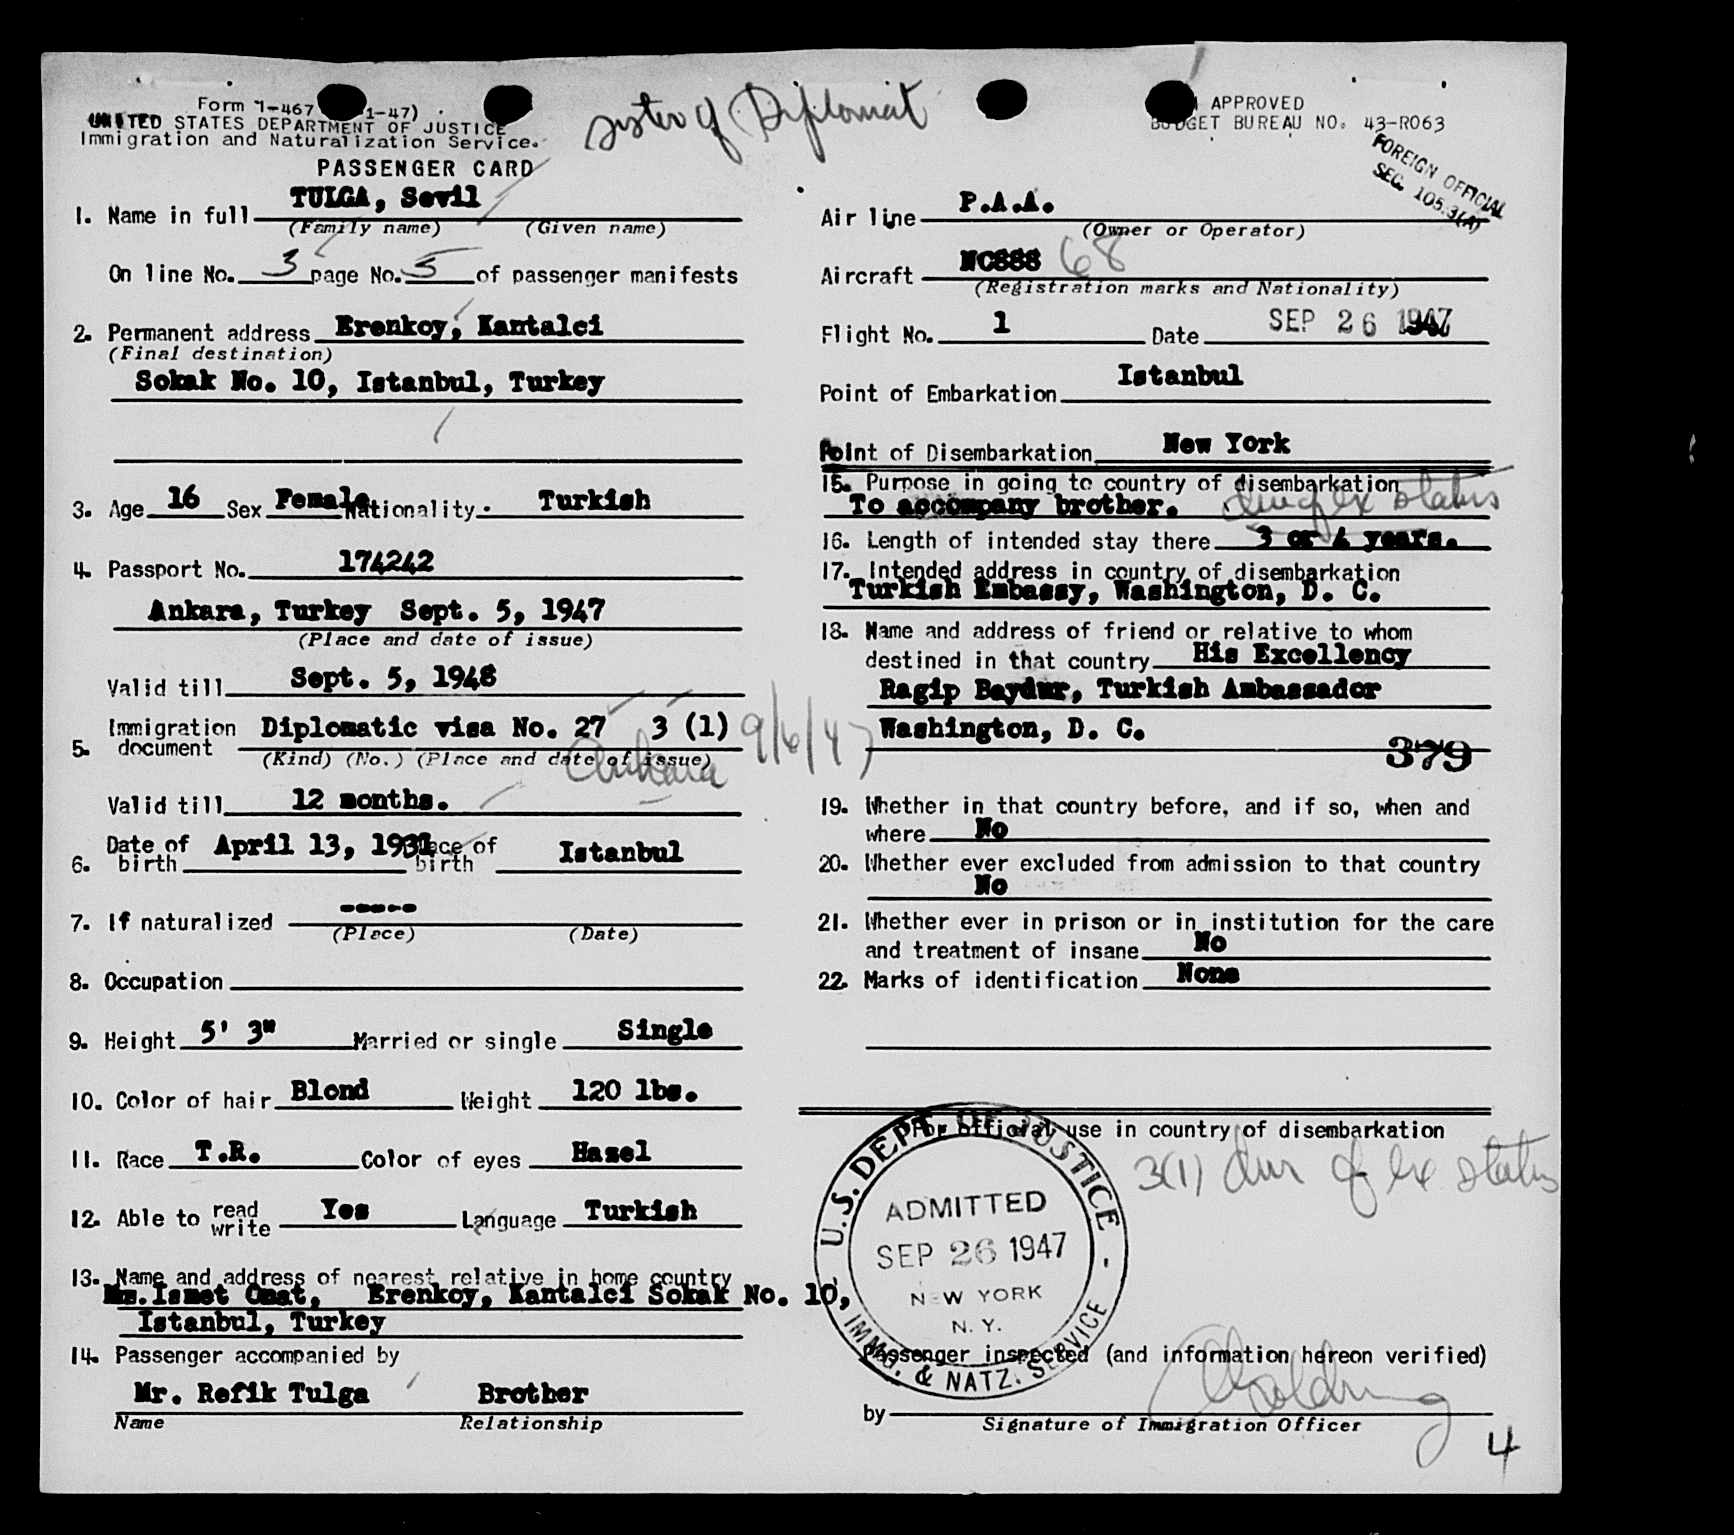 sister of Diplomat
Form I-467 1-47)
UNITED STATES DEPARTMENT OF JUSTICE
Immigration and Naturalization Service.
PASSENGER CARD
APPROVED
BUDGET BUREAU NO. 43-R063
FOREIGN OFFICIAL
SEC. 105.3(A)
1. Name in full TULGA, Sevil
(Family name) (Given name)
On line No. 3 page No. 5 of passenger manifests
2. Permanent address Erenkoy, Kantalci
(Final destination)
Sokak No. 10, Istanbul, Turkey
3. Age 16 Sex Female Nationality Turkish
4. Passport No. 174242
Ankara, Turkey Sept. 5, 1947
(Place and date of issue)
Valid till Sept. 5, 1948
5. Immigration document Diplomatic visa No. 27 3 (1) 9/6/47
(Kind) (No.) (Place and date of issue)
Ankara
Valid till 12 months.
6. Date of birth April 13, 1931 Place of birth Istanbul
7. If naturalized -----
(Place) (Date)
8. Occupation
9. Height 5' 3" Married or single Single
10. Color of hair Blond Weight 120 lbs.
11. Race T.R. Color of eyes Hazel
12. Able to read write Yes Language Turkish
13. Name and address of nearest relative in home country
Ismet Onat, Erenkoy, Kantalci Sokak No. 10,
Istanbul, Turkey
14. Passenger accompanied by
Mr. Refik Tulga Brother
Name Relationship
Air line P.A.A.
(Owner or Operator)
Aircraft NC888 68
(Registration marks and Nationality)
Flight No. 1 Date SEP 26 1947
Point of Embarkation Istanbul
Point of Disembarkation New York
15. Purpose in going to country of disembarkation
To accompany brother. dur of ex status
16. Length of intended stay there 3 or 4 years.
17. Intended address in country of disembarkation
Turkish Embassy, Washington, D. C.
18. Name and address of friend or relative to whom
destined in that country His Excellency
Ragip Baydur, Turkish Ambassador
Washington, D. C.
379
19. Whether in that country before, and if so, when and
where No
20. Whether ever excluded from admission to that country
No
21. Whether ever in prison or in institution for the care
and treatment of insane No
22. Marks of identification None
For official use in country of disembarkation
3(1) dur of ex status
U.S. DEPT. OF JUSTICE - IMMG. & NATZ. SERVICE
ADMITTED
SEP 26 1947
NEW YORK
N. Y.
Passenger inspected (and information hereon verified)
by
Signature of Immigration Officer
4